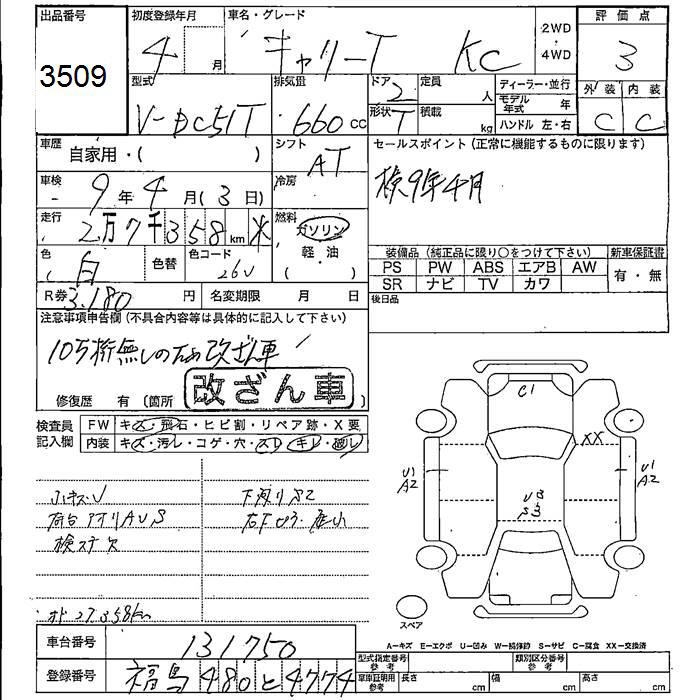 出品番号 初度登録年月 車名・グレード 2WD・4WD 評価点
3509 4月 キャリーT KC 3
型式 排気量 ドア 2 定員 人 ディーラー・並行 外装 内装
モデル年式 年
V-DC51T 660cc 形状 T 積載 kg ハンドル 左・右 C C
車歴 自家用・( ) シフト AT セールスポイント(正常に機能するものに限ります)
車検 9年4月(3日) 冷房 検9年4月
走行 2万7千358km 燃料 ガソリン 軽・油 ( )
色 白 色替 色コード 26U 装備品(純正品に限り○をつけて下さい) 新車保証書
PS PW ABS エアB AW 有・無
SR ナビ TV カワ
R券 3.180円 名変期限 月 日 後日品
注意事項申告欄(不具合内容等は具体的に記入して下さい)
10万桁無しのため改ざん車
改ざん車
修復歴 有(箇所 )
検査員記入欄 FW キズ・飛石・ヒビ割・リペア跡・X要
内装 キズ・汚レ・コゲ・穴・スレ・キレ・破レ
C1
XX
U1 A2
U1 A2
U3 S3
検ステ欠
スペア
A-キズ E-エクボ U-凹み W-補修跡 S-サビ C-腐食 XX-交換済
車台番号 131750
型式指定番号 参考 類別区分番号 参考
登録番号 福島 480 と 4774
車庫証明用 参考 長さ cm 幅 cm 高さ cm